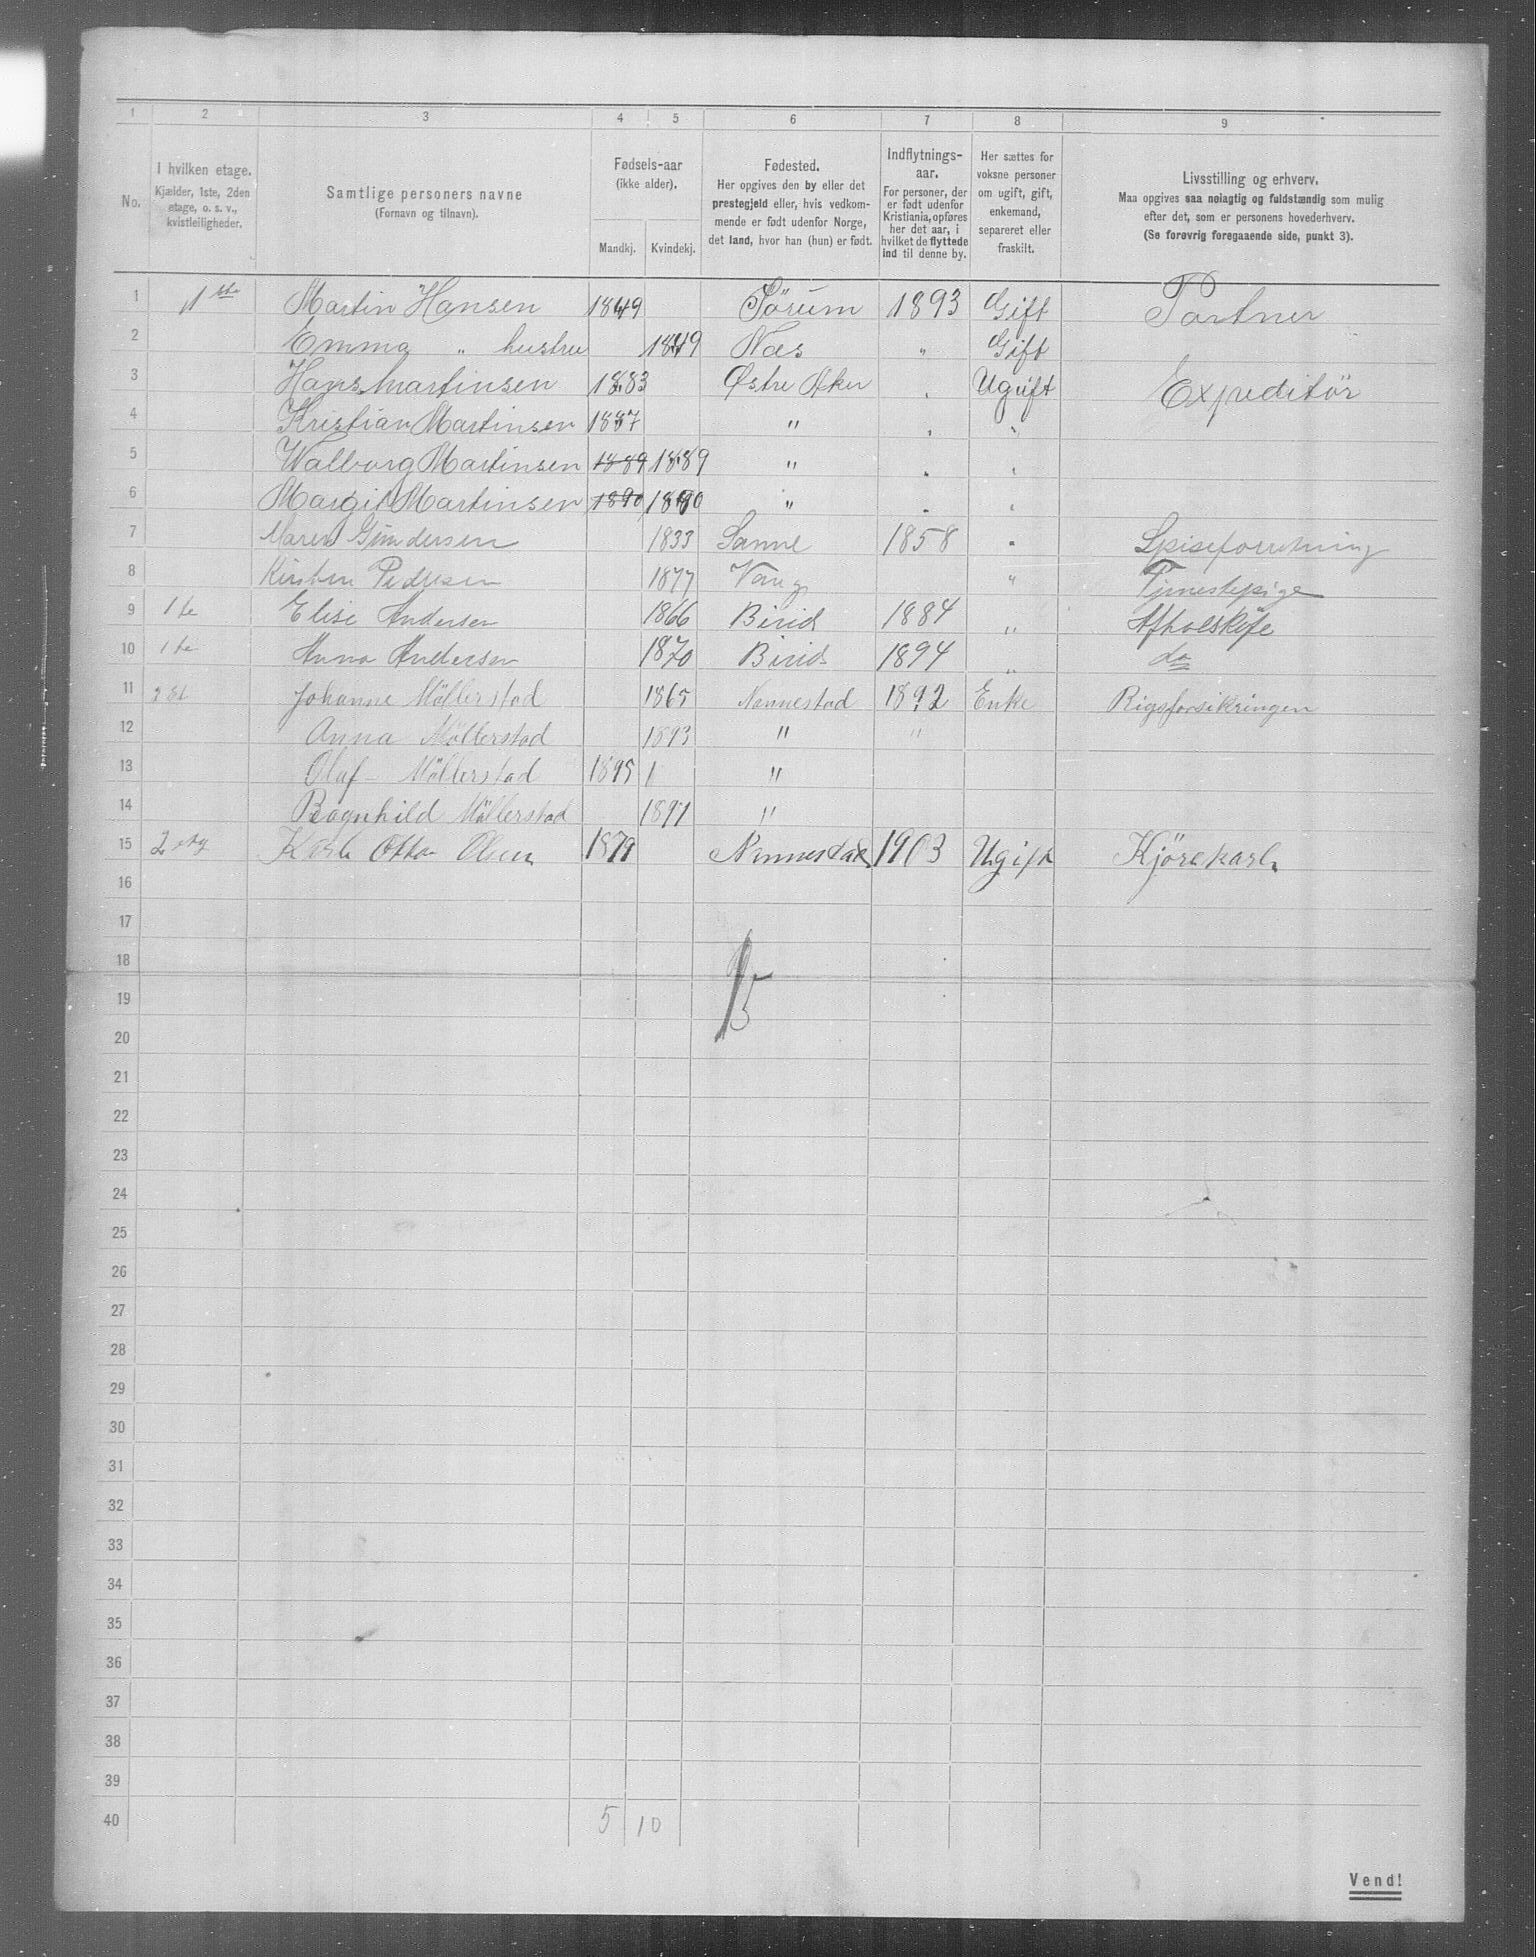 1 2 3 4 5 6 7 8 9
No.
I hvilken etage.
Kjælder, 1ste, 2den
etage, o. s. v.,
kvistleiligheder.
Samtlige personers navne
(Fornavn og tilnavn).
Fødsels-aar
(ikke alder).
Mandkj. Kvindekj.
Fødested.
Her opgives den by eller det
prestegjeld eller, hvis vedkom-
mende er født udenfor Norge,
det land, hvor han (hun) er født.
Indflytnings-
aar.
For personer, der
er født udenfor
Kristiania, opføres
her det aar, i
hvilket de flyttede
ind til denne by.
Her sættes for
voksne personer
om ugift, gift,
enkemand,
separeret eller
fraskilt.
Livsstilling og erhverv.
Maa opgives saa nøiagtig og fuldstændig som mulig
efter det, som er personens hovederhverv.
(Se forøvrig foregaaende side, punkt 3).
1 1ste Martin Hansen 1849 Sörum 1893 Gift Portner
2 Emma " hustru 1849 Næs " Gift
3 Hans Martinsen 1883 Østre Aker " Ugift Expeditör
4 Kristian Martinsen 1887 " " "
5 Walborg Martinsen 1889 1889 " " "
6 Margit Martinsen 1890 1890 " " "
7 Maren Gundersen 1833 Sanne 1858 " Spiseforretning
8 Kirsten Pedersen 1877 Vang " Tjenestepige
9 1te Elise Andersen 1866 Birid 1884 " Afholskafe
10 1te Anna Andersen 1870 Birid 1894 " do
11 2 Et Johanne Möllerstad 1865 Nannestad 1892 Enke Rigsforsikringen
12 Anna Möllerstad 1893 " "
13 Olaf Möllerstad 1895 1 "
14 Ragnhild Möllerstad 1897 "
15 2 etg Karl Otto Olsen 1879 Nannestad 1903 Ugift Kjörekarl
16
17
18
15
19
20
21
22
23
24
25
26
27
28
29
30
31
32
33
34
35
36
37
38
39
40 5 10
Vend!